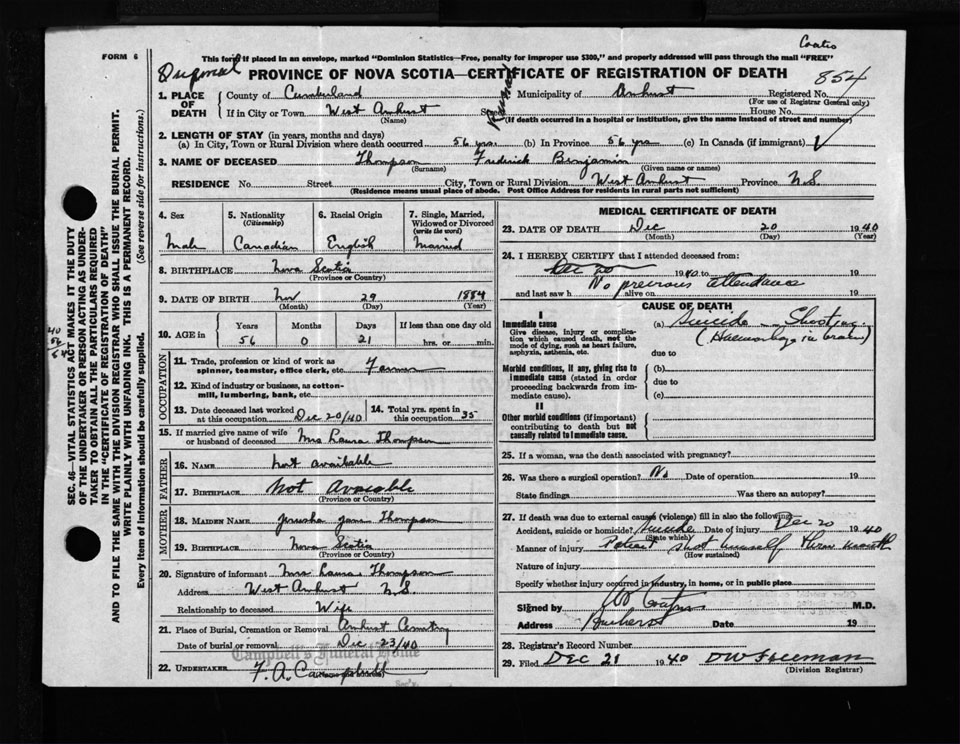 Coates
FORM 6
This form if placed in an envelope, marked "Dominion Statistics—Free, penalty for improper use $300," and properly addressed will pass through the mail "FREE"
PROVINCE OF NOVA SCOTIA—CERTIFICATE OF REGISTRATION OF DEATH
854
1. PLACE OF DEATH
County of Cumberland
Municipality of Amherst
Registered No.
(For use of Registrar General only)
If in City or Town West Amherst
(Name)
House No.
(If death occurred in a hospital or institution, give the name instead of street and number)
2. LENGTH OF STAY (in years, months and days)
(a) In City, Town or Rural Division where death occurred 56 yrs. (b) In Province 56 yrs. (c) In Canada (if immigrant)
3. NAME OF DECEASED Thompson Frederick Benjamin
(Surname) (Given name or names)
RESIDENCE No. Street City, Town or Rural Division West Amherst Province N.S.
(Residence means usual place of abode. Post Office Address for residents in rural parts not sufficient)
4. Sex
Male
5. Nationality (Citizenship)
Canadian
6. Racial Origin
English
7. Single, Married, Widowed or Divorced (write the word)
Married
8. BIRTHPLACE Nova Scotia
(Province or Country)
9. DATE OF BIRTH Nov 29 1884
(Month) (Day) (Year)
10. AGE in
Years Months Days If less than one day old
56 0 21 hrs. or min.
OCCUPATION
11. Trade, profession or kind of work as spinner, teamster, office clerk, etc. Farmer
12. Kind of industry or business, as cotton-mill, lumbering, bank, etc.
13. Date deceased last worked at this occupation Dec 20/40
14. Total yrs. spent in this occupation 35
15. If married give name of wife or husband of deceased Mrs Laura Thompson
FATHER
16. NAME not available
17. BIRTHPLACE Not Avaiable
(Province or Country)
MOTHER
18. MAIDEN NAME Jerusha Jane Thompson
19. BIRTHPLACE Nova Scotia
(Province or Country)
20. Signature of informant Mrs Laura Thompson
Address West Amherst N.S.
Relationship to deceased Wife
21. Place of Burial, Cremation or Removal Amherst
Date of burial or removal Dec 23/40
Campbell's Funeral Home
22. UNDERTAKER F. A. Campbell
MEDICAL CERTIFICATE OF DEATH
23. DATE OF DEATH Dec 20 1940
(Month) (Day) (Year)
24. I HEREBY CERTIFY that I attended deceased from:
Dec 20 1940 to 19
No previous attendance
and last saw h alive on 19
CAUSE OF DEATH
I
Immediate cause
Give disease, injury or complication which caused death, not the mode of dying, such as heart failure, asphyxia, asthenia, etc.
(a) Suicide Shooting
(Haemorrhage in brain)
due to
Morbid conditions, if any, giving rise to immediate cause (stated in order proceeding backwards from immediate cause).
(b)
due to
(c)
II
Other morbid conditions (if important) contributing to death but not causally related to immediate cause.
25. If a woman, was the death associated with pregnancy?
26. Was there a surgical operation? No Date of operation 19
State findings Was there an autopsy?
27. If death was due to external causes (violence) fill in also the following:
Accident, suicide or homicide? Suicide Date of injury Dec 20 1940
(State which)
Manner of injury Patient shot himself thru mouth
(How sustained)
Nature of injury
Specify whether injury occurred in industry, in home, or in public place
Signed by M.D.
Address Amherst Date 19
28. Registrar's Record Number
29. Filed Dec 21 1940 DW Freeman
(Division Registrar)
SEC. 46—VITAL STATISTICS ACT MAKES IT THE DUTY OF THE UNDERTAKER OR PERSON ACTING AS UNDERTAKER TO OBTAIN ALL THE PARTICULARS REQUIRED IN THE "CERTIFICATE OF REGISTRATION OF DEATH" AND TO FILE THE SAME WITH THE DIVISION REGISTRAR WHO SHALL ISSUE THE BURIAL PERMIT.
WRITE PLAINLY WITH UNFADING INK. THIS IS A PERMANENT RECORD.
Every item of information should be carefully supplied. (See reverse side for instructions.)